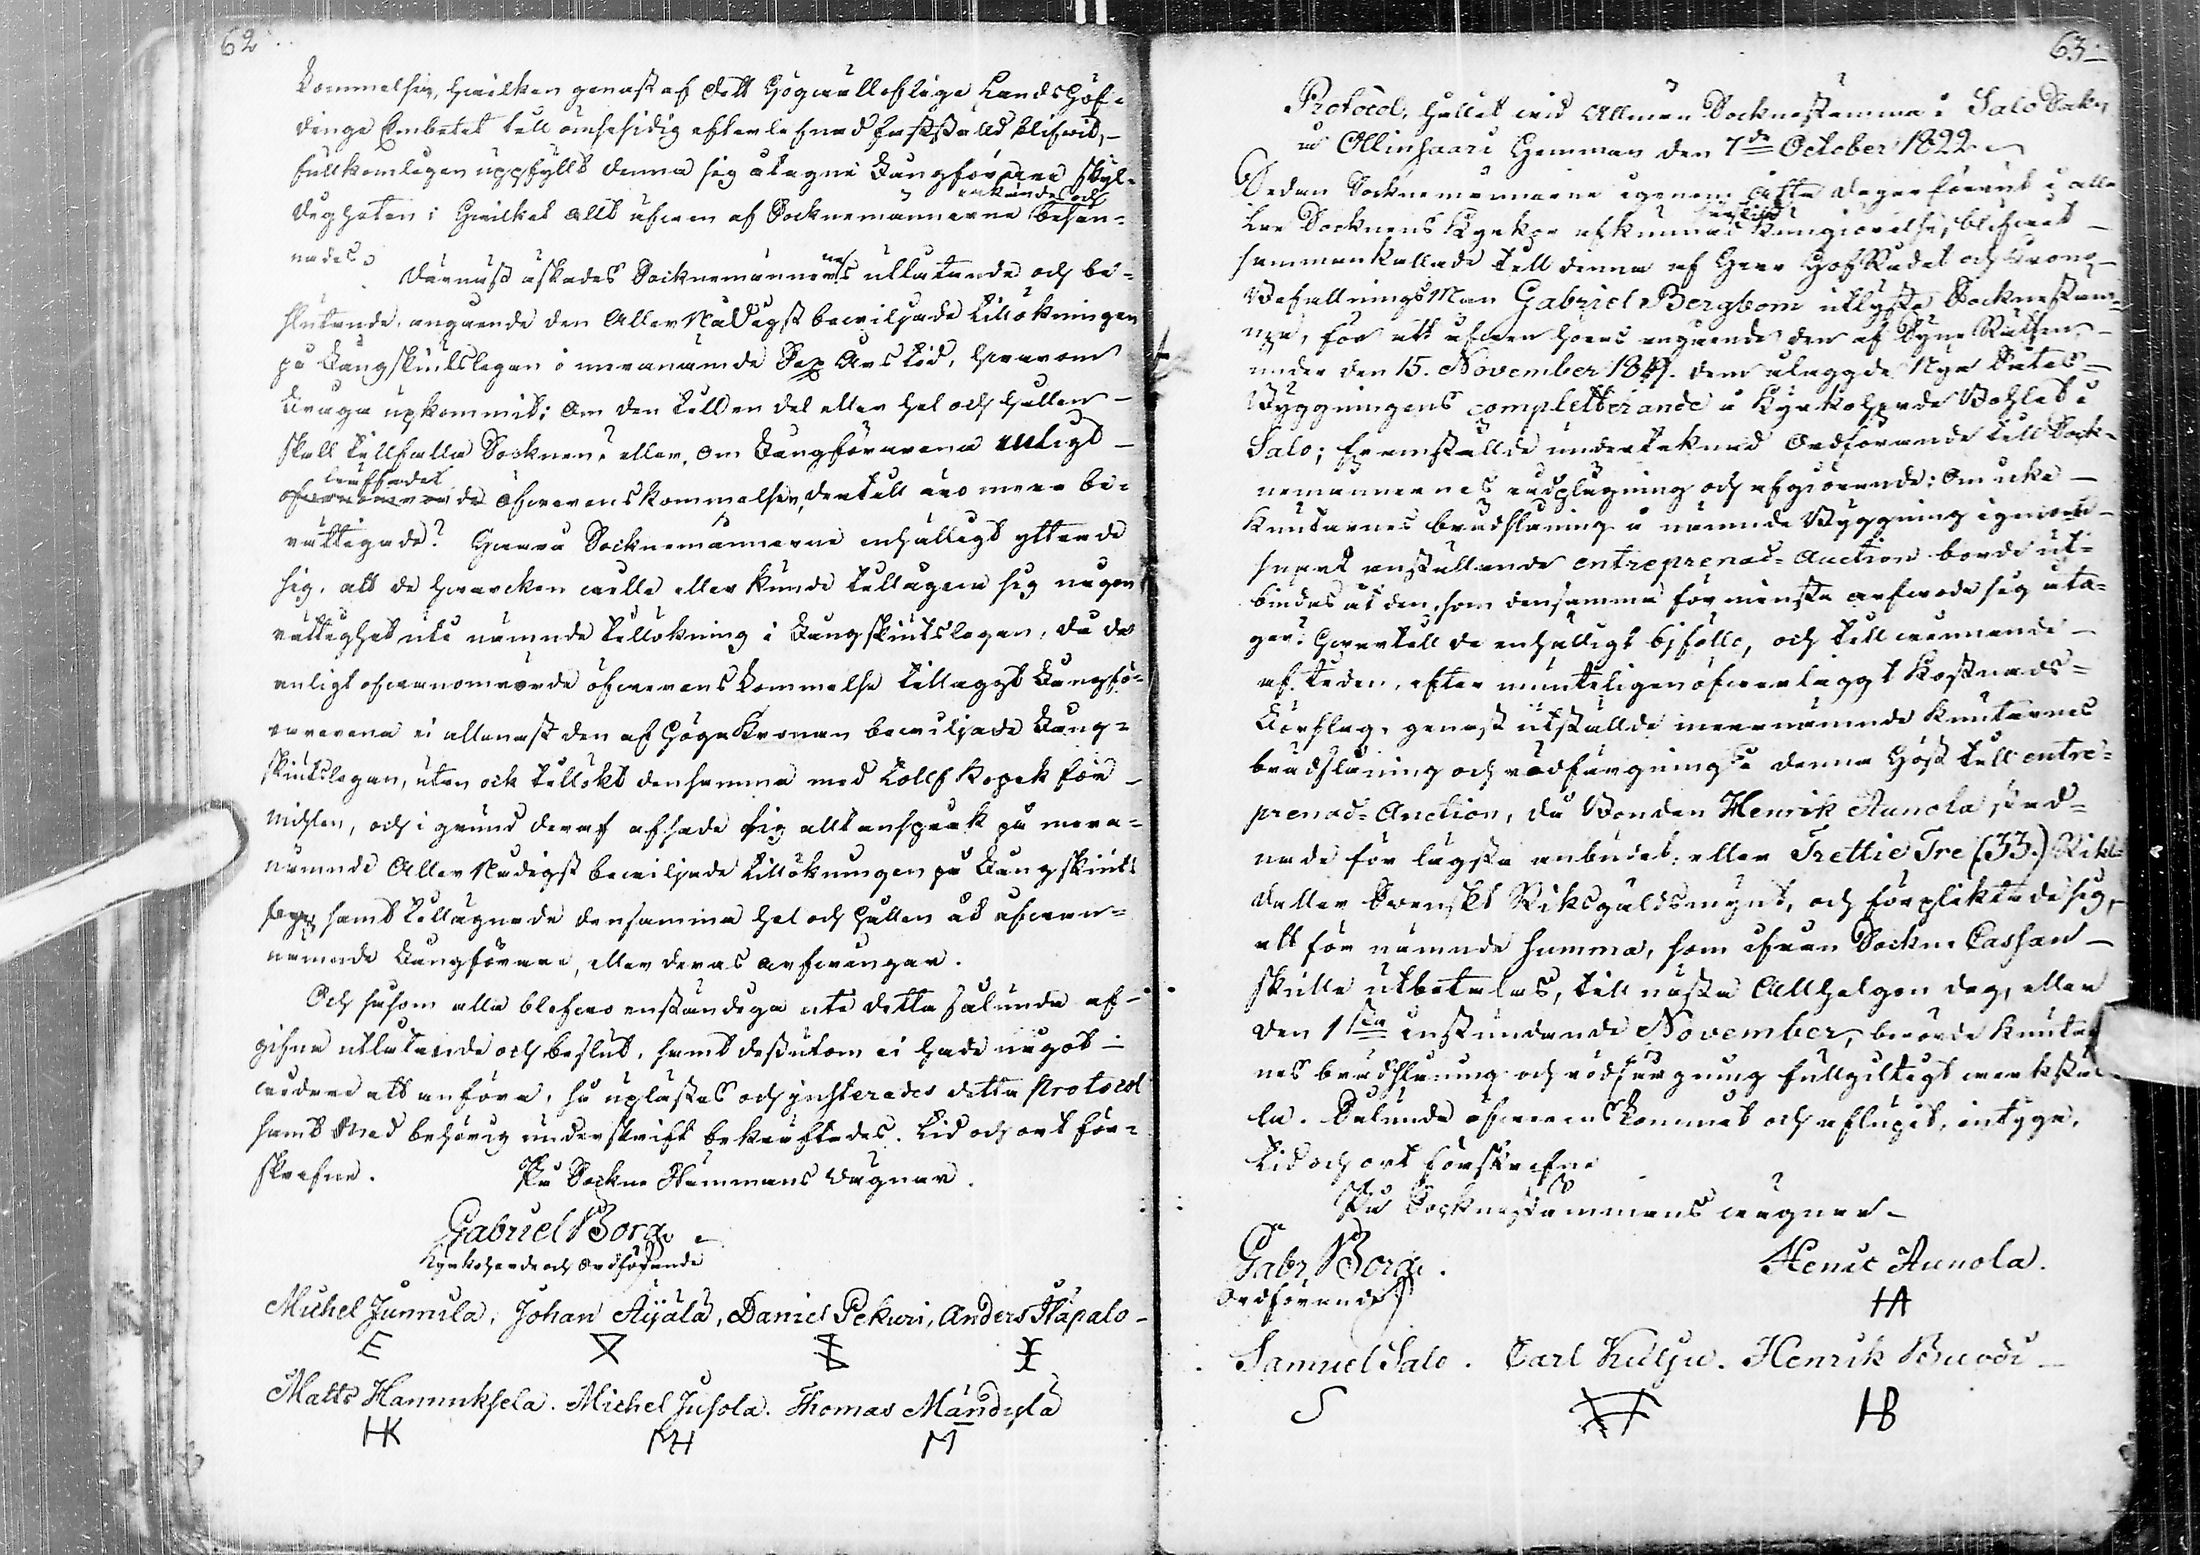 62
kommelsen, hwilken genast af dett Högwälloflige Landshöf-
dinge Embetet till ömsesidig efterlefnad fastställd blifwit, -
fullkomligen uppfyllt denna sig åtagne Fångförare skyl-
erkändes och
digheten; Hwilket allt äfwen af Socknemännerne besan-
nades.
Därnäst äskades Socknemännernes utlåtande och be-
slutande, angående den Aller Nådigst bewiljade tillökningen
på Fångskjutslegan i meranämde Sex Års tid, hwarom
fråga upkommit: Om den till en del eller hel och hållen -
skall tillfalla Socknen? eller, om Fångförarena enligt -
träffadet
ofwannämnde öfwerenskommelsen, dertill äro mera be-
rättigade? Hwarå Socknemännerne enhälligt yttrade
sig, att de hwarcken wille eller kunde tillägna sig någon
rättighet uti nämnde tillökning i Fångskjutslegan, då de
enligt ofwanomrörde öfwerenskommelse tillagt Fångfö-
rarena ei allenast den af Höga Kronan bewiljade Fång-
skjutslegan, utan ock tillökt densamma med tolf Kopek för -
milen, och i grund deraf afsade sig allt anspråk på mera-
nämnde Aller Nådigst bewiljade tillökningen på Fångskjuts
legan samt tillägnade densamma hel och hållen åt ofwan-
nämnde Fångförare, eller deras arfwingar.
Och såsom alla blefwo enständiga uti detta sålunda af-
gifne utlåtande och beslut, samt dessutom ei hade något -
widare att anföra, så uplästes och justerades detta Protocol
samt med behörig underskrift bekräftades. Tid och ort för-
skrefne.
På Sockne Stämmans wägnar.
Gabriel Borg
Kyrkoherde och Ordförande
Michel Junnila, Johan Äijälä, Daniel Pekuri, Anders Hapalo -
Matts Hannuksela. Michel Jusola. Thomas Mändylä
HK MH M
63
Protocol, hållet wid Allmän Socknestämma i Salo Sokn
å Ollinsaari Hemman den 7de October 1822.
Sedan Socknemännerne igenom åtta dagar förut i alla
tre Socknens Kyrkor afkunnad kungiörelse, blifwit -
sammankallade till denna af Herr HofRådet och Krono-
BefallningsMan Gabriel Bergbom utlyste Socknestäm-
ma, för att äfwen höras angående den af Syne Rätten -
under den 15. November dem ålaggde Nya Sätes-
Byggningens completterande å Kyrkoherde Bohlet i
Salo; framställde undertecknad Ordförande till Sock-
nemännernes rådplägning och afgiörande: Om icke -
Knutarnes brädslåning å nämnde Byggning igenom
snart anställande entreprenad-Auction borde ut-
bindas åt den, som densamma för minsta arfwode sig åta-
ger? Hwartill de enhälligt biföllo, och till winnande -
af tiden, efter munteligen öfwerlaggt Kostnads-
Förslag, genast utställde meranämnde Knutarnes
brädslåning och rödfärgning denna Höst till entre-
prenad-Auction, då Bonden Henrik Aunola stad-
nade för lägsta anbudet: eller Trettie Tre (33.) Riks-
daller Svenskt Riksgäldsmynt, och förpliktade sig, -
att för nämnde summa, som ifrån Sockne Cassan -
skulle utbetalas, till nästa Allhelgon dag, eller
den 1sta instundande November, berörde Knutar
nes brädslåning och rödfärgning fullgiltigt werkstäl-
la. Sålunda öfwerenskommit och aflupit, intyga,
Tid och ort förskrefne
På Socknestämmans wägnar -
Gabr Borg.
Ordförande
Henric Aunola.
HA
Samuel Salo. Carl Kulju. Henrik Buodi -
S HB